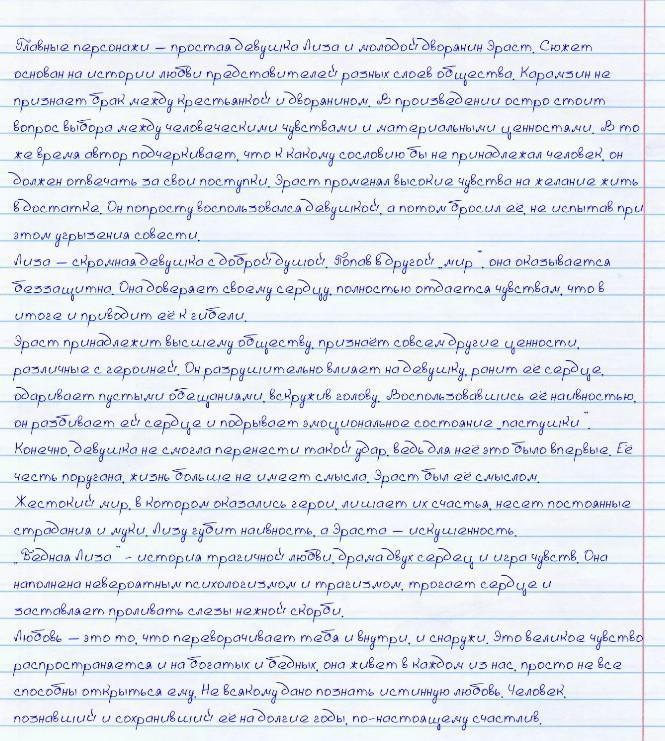 Главные персонажи – простая девушка Лиза и молодой дворянин Эраст. Сюжет
основан на истории любви представителей разных слоев общества. Карамзин не
признает брак между крестьянкой и дворянином. В произведении остро стоит
вопрос выбора между человеческими чувствами и материальными ценностями. В то
же время автор подчеркивает, что к какому сословию бы не принадлежал человек, он
должен отвечать за свои поступки. Эраст променял высокие чувства на желание жить
в достатке. Он попросту воспользовался девушкой, а потом бросил её, не испытав при
этом угрызения совести.
Лиза – скромная девушка с доброй душой. Попав в другой „мир“, она оказывается
беззащитна. Она доверяет своему сердцу, полностью отдается чувствам, что в
итоге и приводит её к гибели.
Эраст принадлежит высшему обществу, признаёт совсем другие ценности,
различные с героиней. Он разрушительно влияет на девушку, ранит её сердце,
одаривает пустыми обещаниями, вскружив голову. Воспользовавшись её наивностью,
он разбивает ей сердце и подрывает эмоциональное состояние „пастушки“.
Конечно, девушка не смогла перенести такой удар, ведь для неё это было впервые. Её
честь поругана, жизнь больше не имеет смысла. Эраст был её смыслом.
Жестокий мир, в котором оказались герои, лишает их счастья, несет постоянные
страдания и муки. Лизу губит наивность, а Эраста – искушенность.
„Бедная Лиза“ - история трагичной любви, драма двух сердец и игра чувств. Она
наполнена невероятным психологизмом и трагизмом, трогает сердце и
заставляет проливать слезы нежной скорби.
Любовь – это то, что переворачивает тебя и внутри, и снаружи. Это великое чувство
распространяется и на богатых и бедных, она живет в каждом из нас, просто не все
способны открыться ему. Не всякому дано познать истинную любовь. Человек,
познавший и сохранивший её на долгие годы, по-настоящему счастлив.